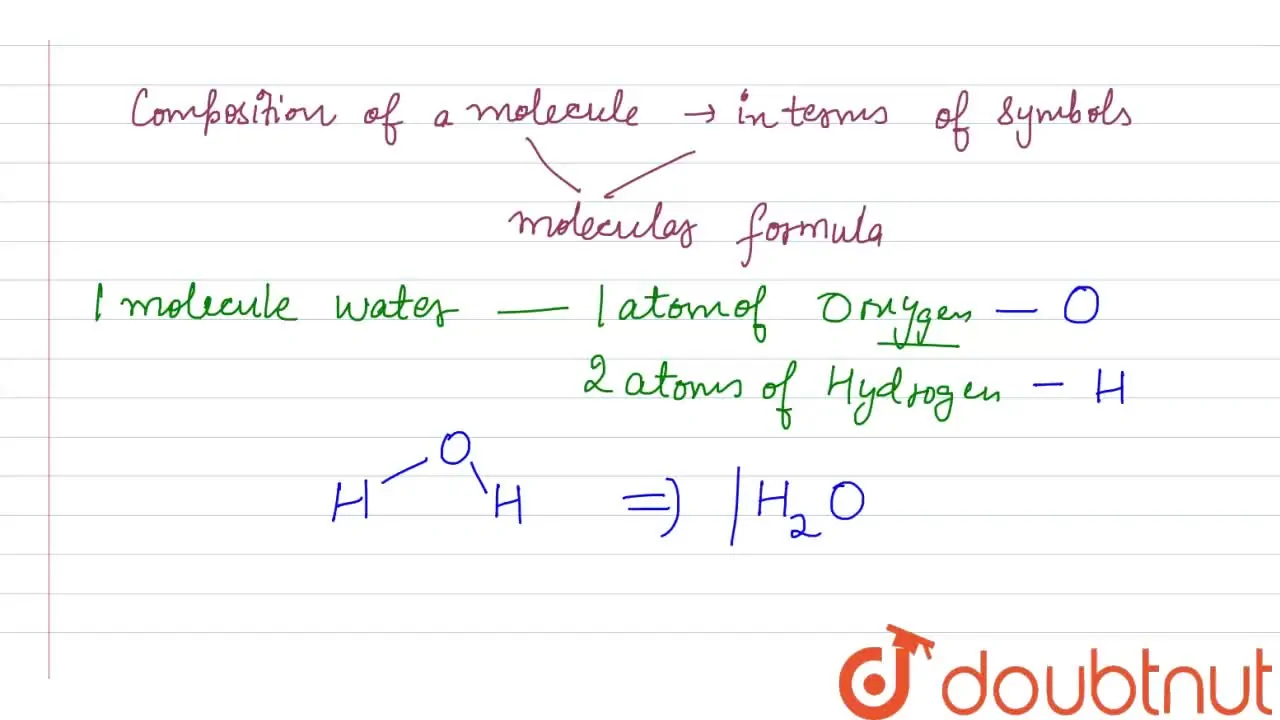 Composition of a molecule → in terms of symbols
molecular formula
1 molecule water — 1 atom of Oxygen — O
2 atoms of Hydrogen — H
O
H H ⇒ | H₂O
doubtnut